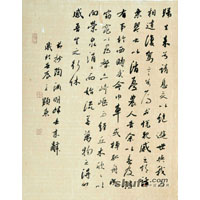 歸去来兮請息交以絕遊世與我
相違復駕言兮焉求悅親戚之情
話樂琴書以消憂農人告余以春及
有事於西疇或命巾車或棹孤舟既
窈窕以尋壑亦崎嶇而經丘木欣欣以
向榮泉涓涓而始流善萬物之得時
感吾生之行休
右抄陶淵明歸去来辭